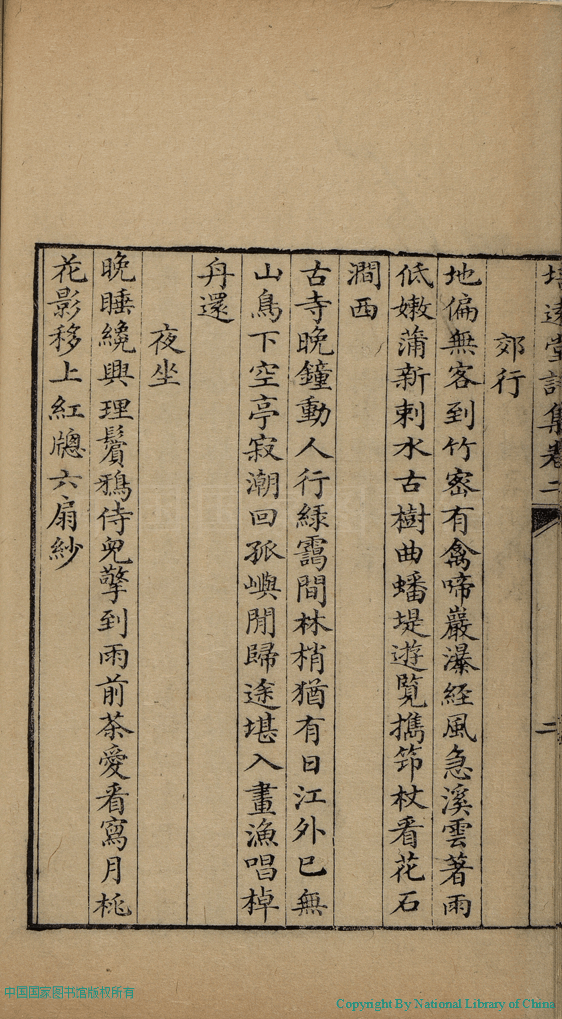 培遠堂詩集卷二
二
郊行
地偏無客到竹宻有禽啼巖瀑經風急溪雲著雨
低嫩蒲新刺水古樹曲蟠堤遊覽擕笻杖看花石
澗西
古寺晚鐘動人行綠靄間林梢猶有日江外已無
山鳥下空亭寂潮回孤嶼閒歸途堪入畫漁唱棹
舟還
夜坐
晚睡纔興理鬢鴉侍兒擎到雨前茶愛看寫月桃
花影移上紅牕六扇紗
中国国家图书馆版权所有
Copyright By National Library of China